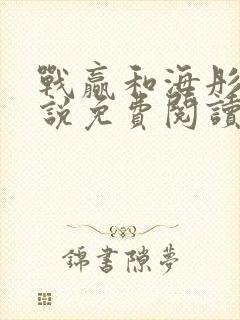 戰贏和海彤
說免費閱讀
錦書隙夢